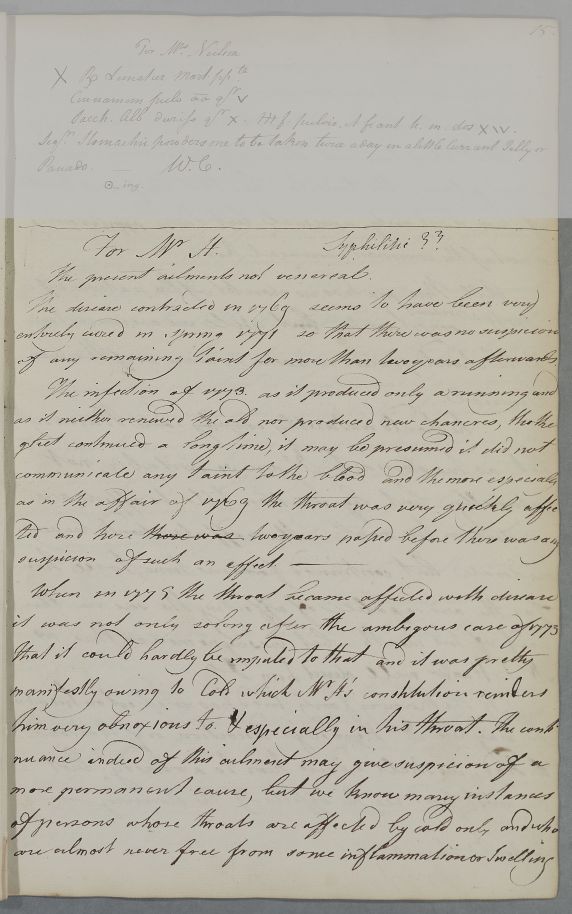 15.
For Mrs. Nielson
Cinnamon pulv aa
Bacch. Alb
Stomachic powders one to be taken twice a day in a little Currant Jelly or
Panado. — W.C.
For Mr. H. Syphilitic ??
The present ailments not venereal.
The disease contracted in 1769 seems to have been very
entirely cured in Spring 1771 so that there was no suspicion
of any remaining taint for more than two years afterwards
The infection of 1773. as it produced only a running and
as it neither renewed the old nor produced new chancres, tho the
gleet continued a long time, it may be presumed it did not
communicate any taint to the blood and the more especially
as in the affair of 1769 the throat was very quickly affec
ted and here there was two years passed before there was any
suspicion of such an effect. —
When in 1775 the throat became affected with disease
it was not only so long after the ambigous case of 1773
that it could hardly be imputed to that and it was pretty
manifestly owing to Cold which Mr H's constitution renders
him very obnoxious to & especially in his throat. The conti
nuance indeed of this ailment may give suspicion of a
more permanent cause, but we know many instances
of persons whose throats are affected by cold only and who
are almost never free from some inflammation or Swelling